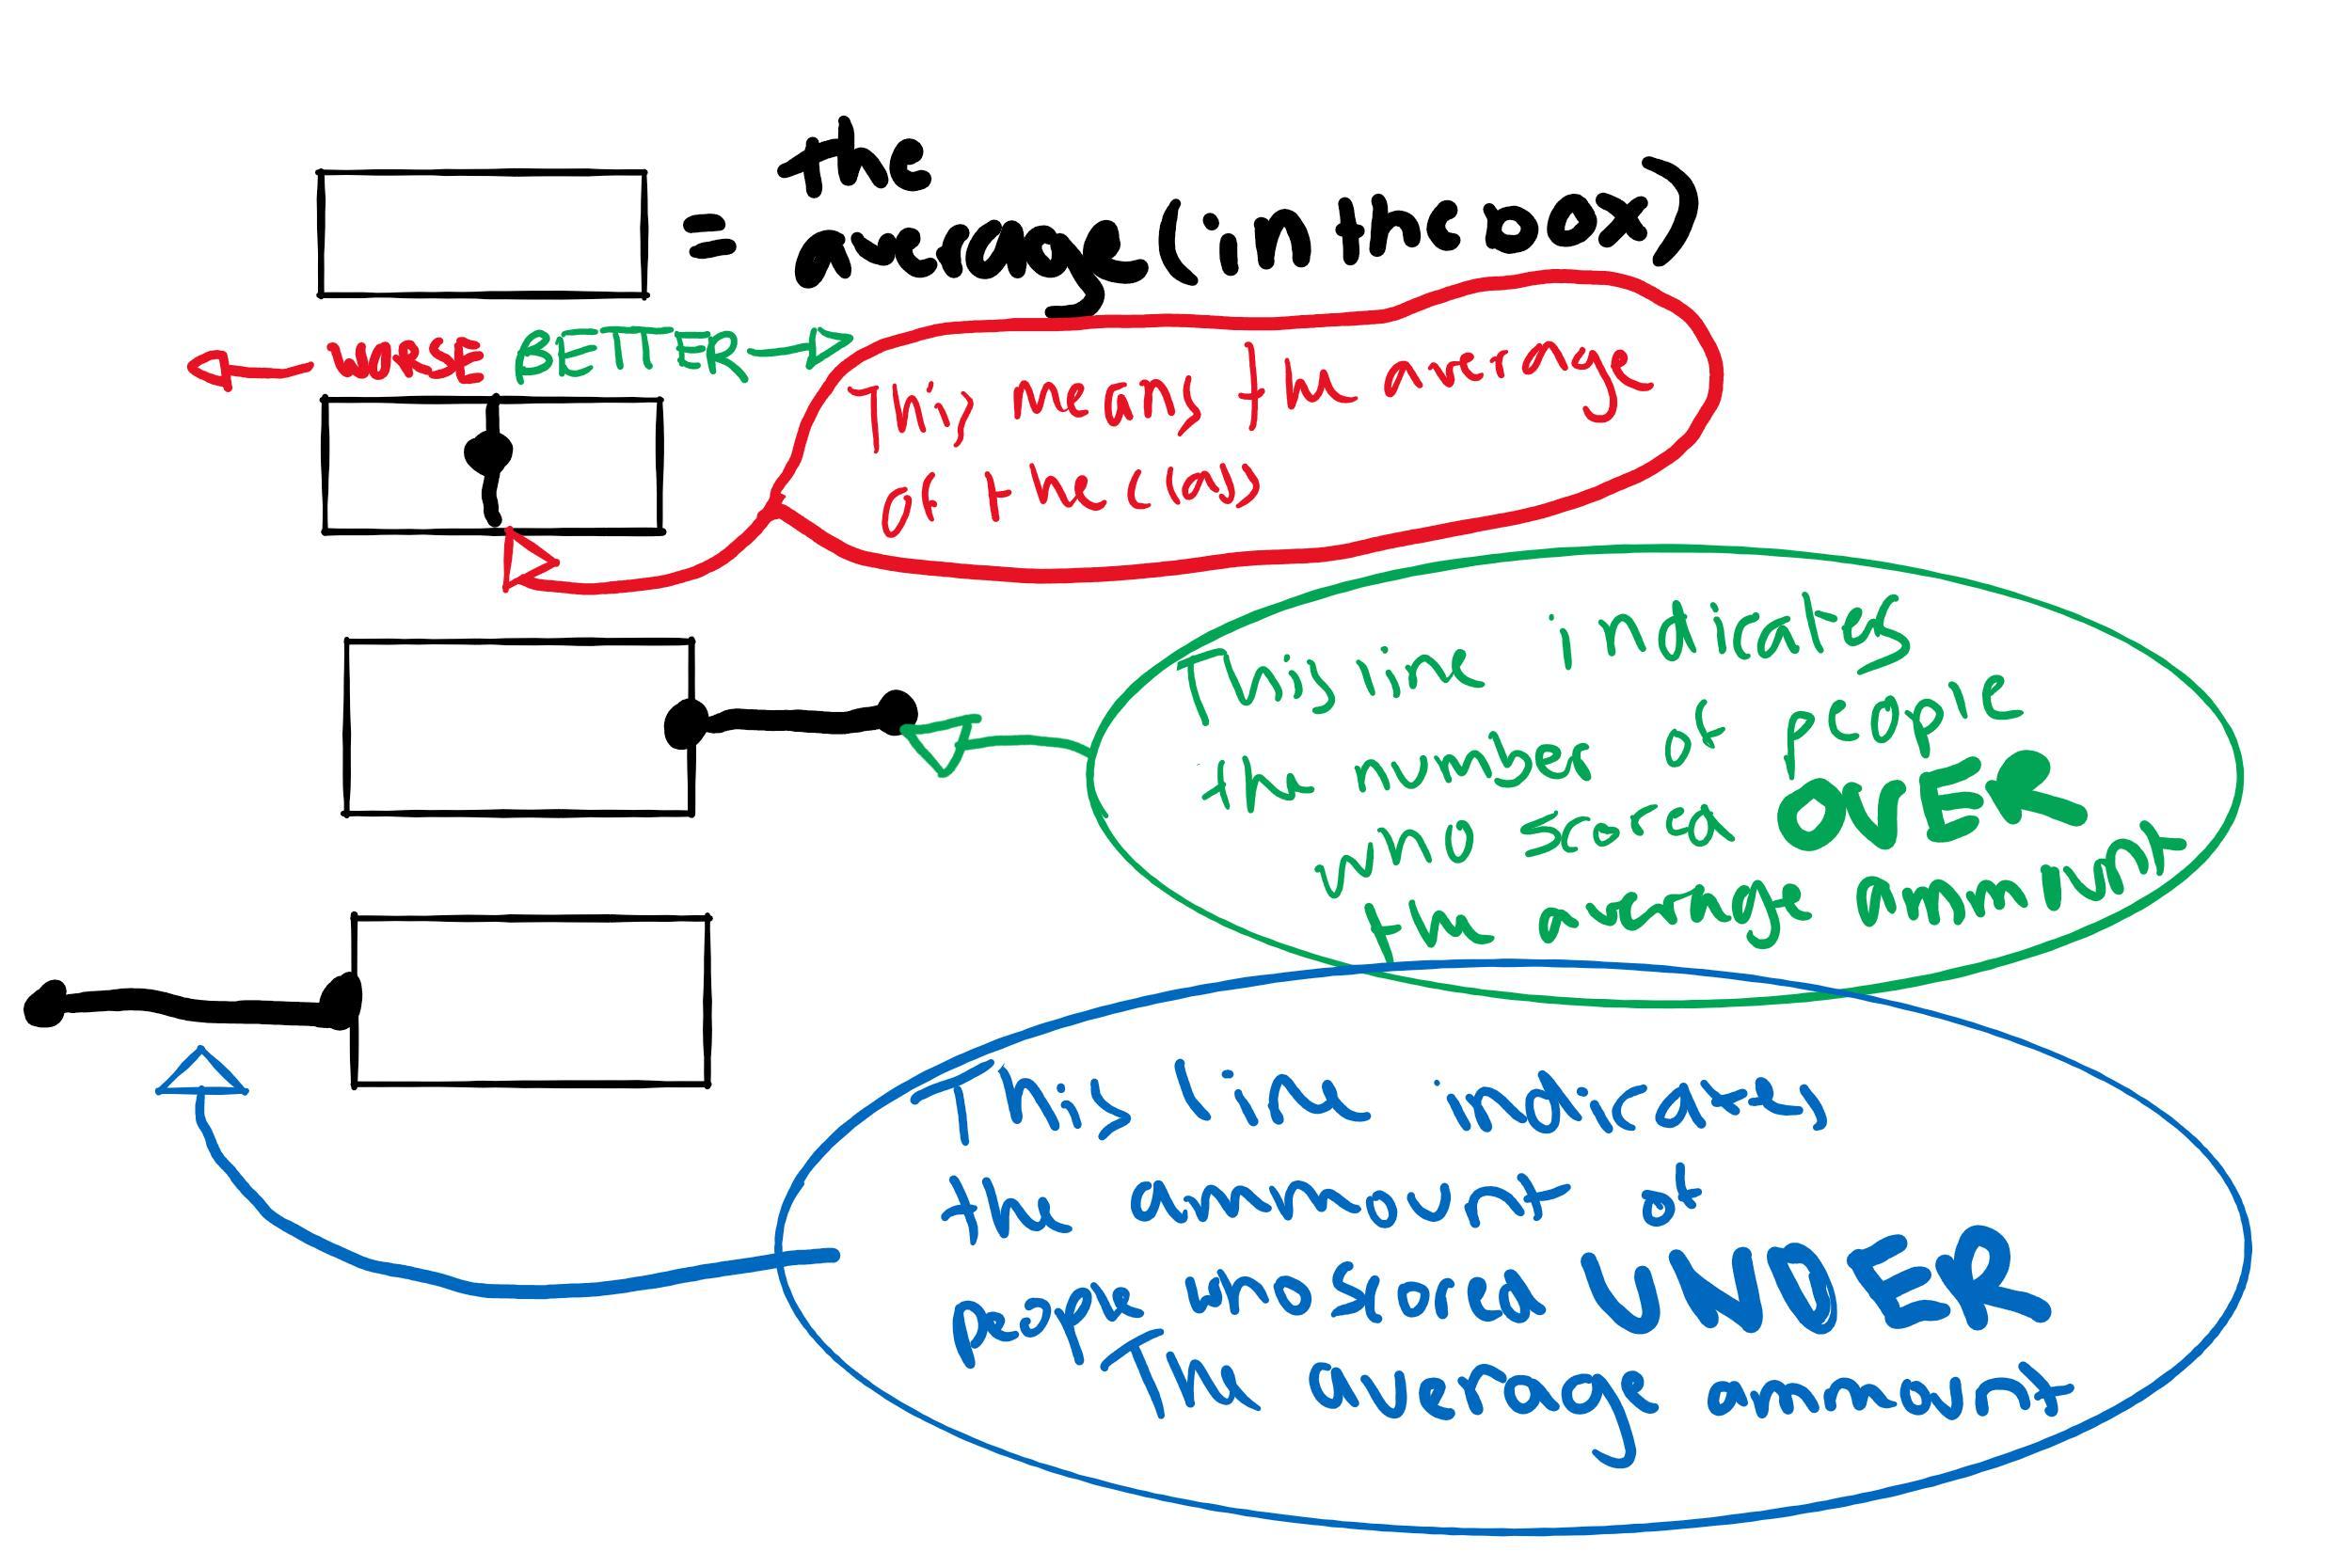 the
= average (in the box)
WORSE BETTER
This means the average
of the class
This line indicates
the number of people
who scored OVER
the average ammount
This line indicates
the ammount of
people who scored UNDER
The average ammount